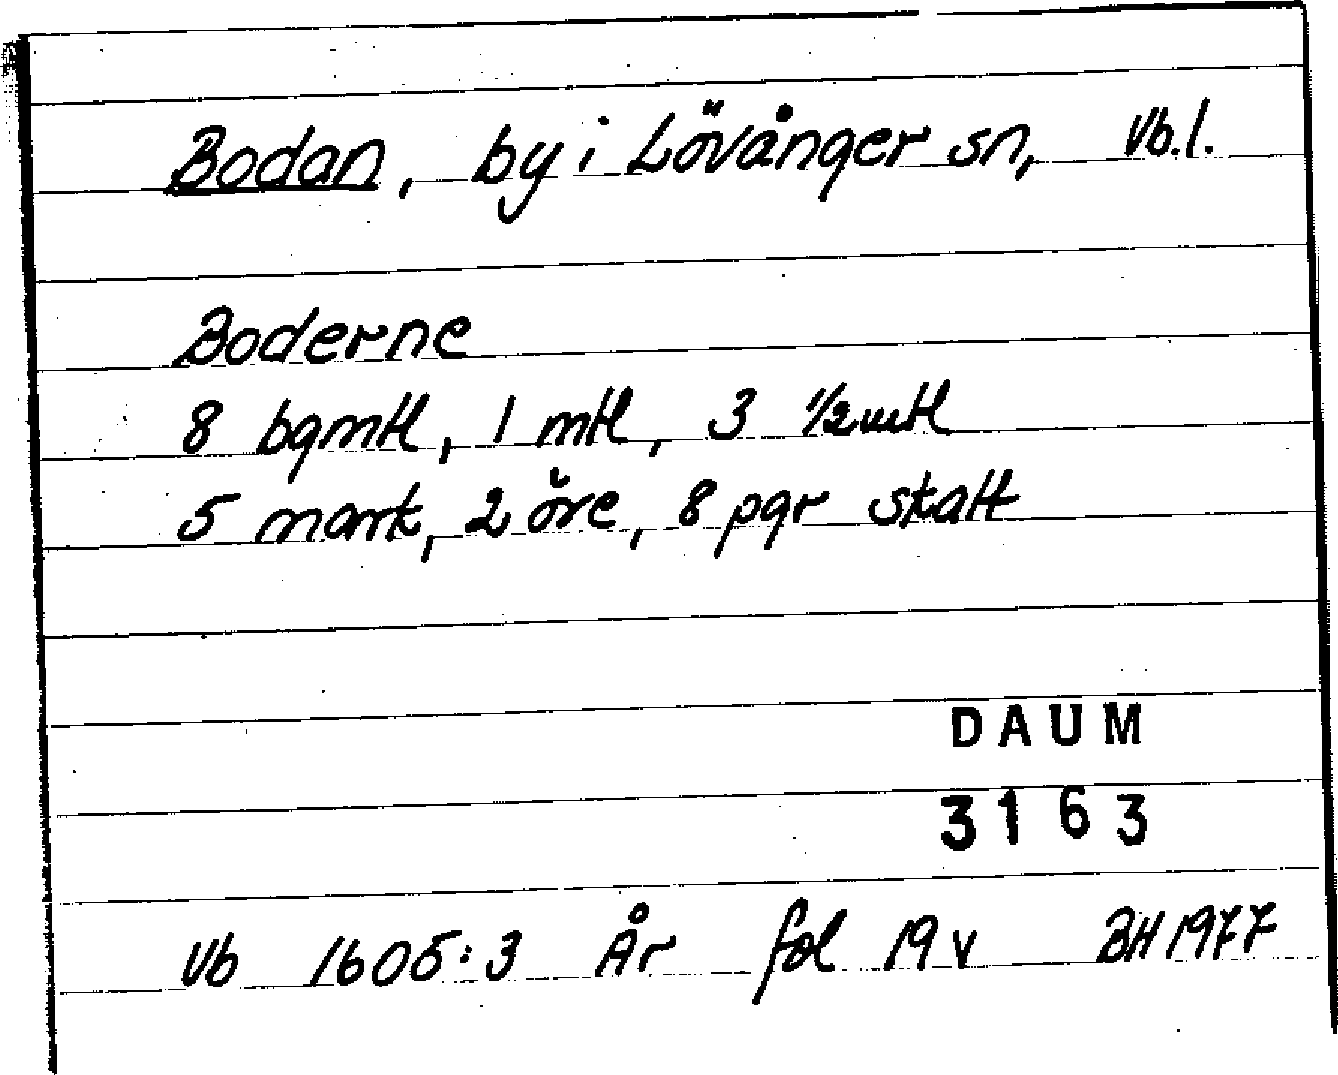 Bodan, by i Lövånger sn, Vb.l.
Boderne
8 bgmtl, 1 mtl, 3 1/2 mtl
5 mark, 2 öre, 8 pgr skatt
DAUM
3163
Vb 1605:3 År fol 19 v BH 1977